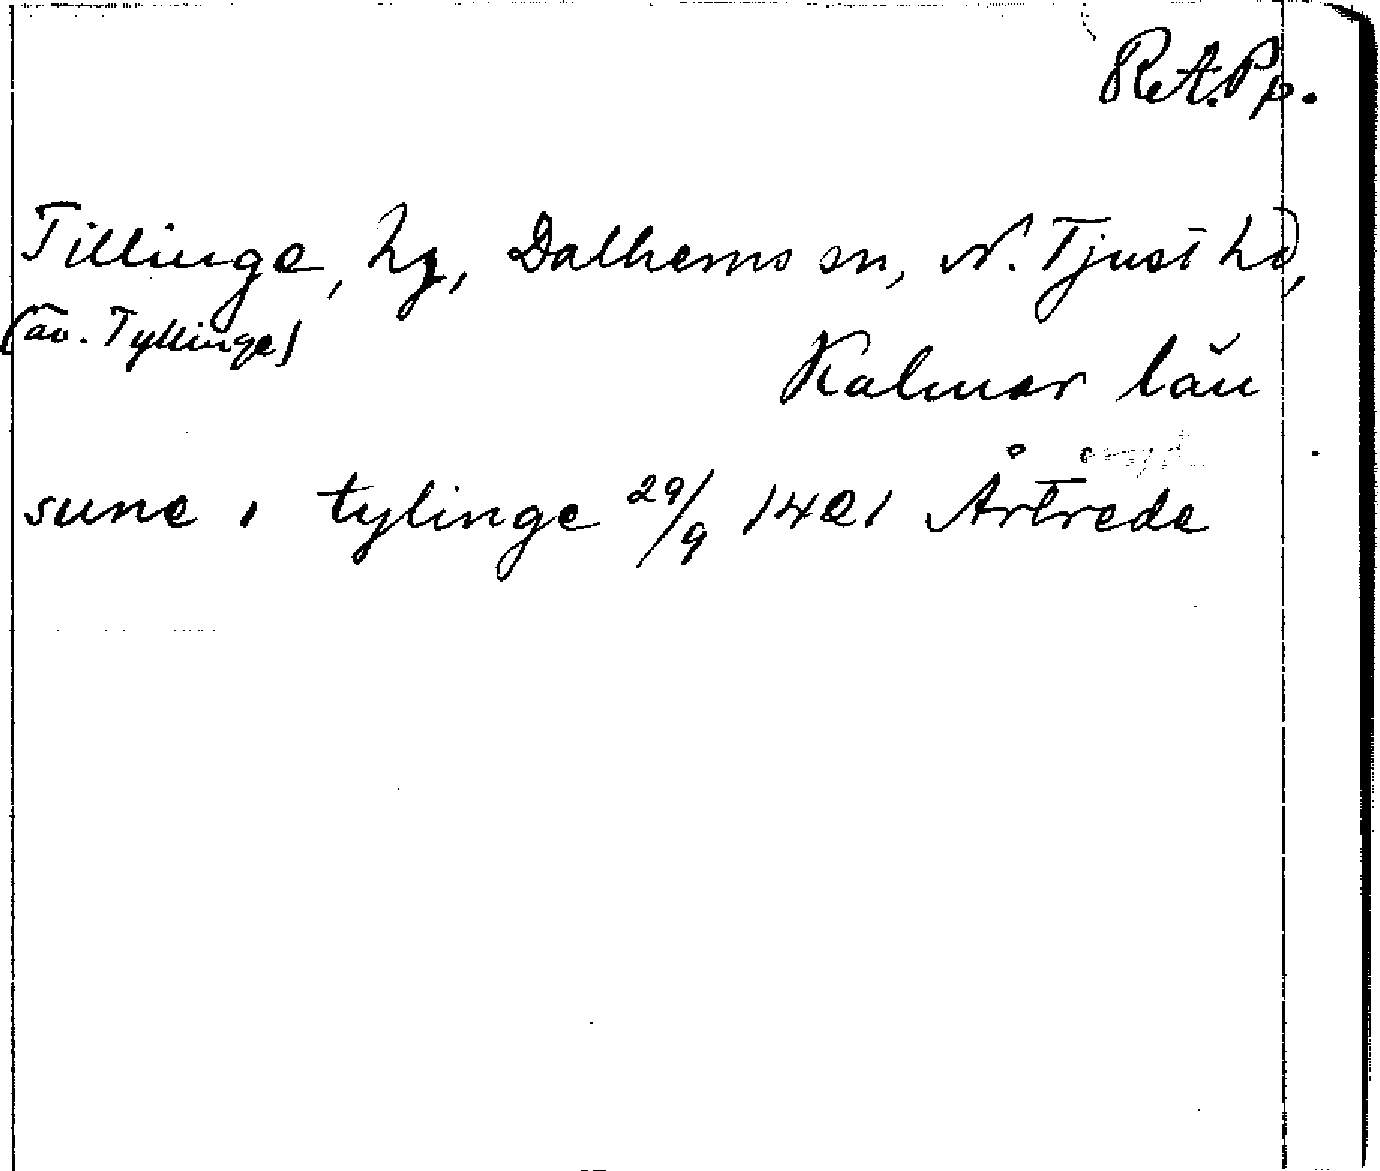 R.A.Pp.
Tillinge, hg, Dalhems sn, N. Tjust hd,
(äv. Tyllinge)
Kalmar län
sune i tylinge 29/9 1421 Årtreda